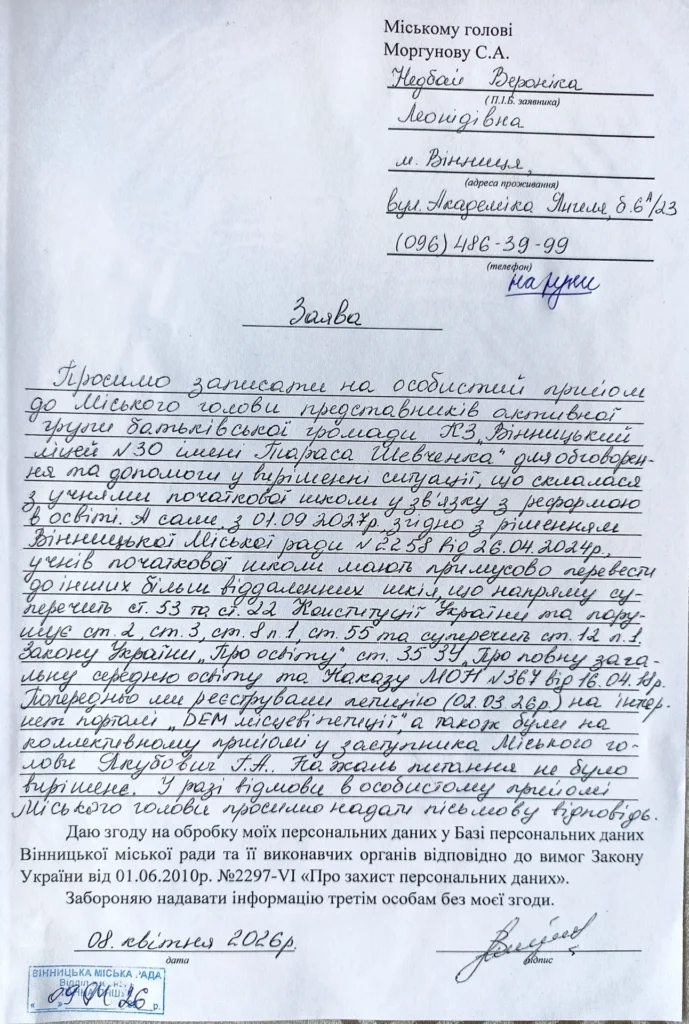 Міському голові
Моргунову С.А.
Недбай Вероніка
(П.І.Б. заявника)
Леонідівна
м. Вінниця,
(адреса проживання)
вул. Академіка Янгеля, б.6А/23
(096) 486-39-99
(телефон)
на руки
Заява
Просимо записати на особистий прийом
до Міського голови представників активної
групи батьківської громади КЗ „Вінницький
ліцей №30 імені Тараса Шевченка" для обговорен-
ня та допомоги у вирішенні ситуації, що склалася
з учнями початкової школи у зв'язку з реформою
в освіті. А саме, з 01.09 2027р. згідно з рішенням
Вінницької Міської ради №2258 від 26.04.2024р.,
учнів початкової школи мають примусово перевести
до інших більш віддаленних шкіл, що напряму су-
перечить ст. 53 та ст. 22 Конституції України та пору-
шує ст. 2, ст. 3, ст. 8 п.1, ст. 55 та суперечить ст. 12 п.1.
Закону України „Про освіту" ст. 35 ЗУ „Про повну зага-
льну середню освіту та Наказу МОН №367 від 16.04.18р.
Попередньо ми реєстрували петицію (02.03.26р.) на інтер-
нет порталі „DEM місцеві петиції", а також були на
коллективному прийомі у заступника Міського го-
лови Якубович Г.А.. На жаль питання не було
вирішене. У разі відмови в особистому прийомі
Міського голови просимо надати письмову відповідь.
Даю згоду на обробку моїх персональних даних у Базі персональних даних
Вінницької міської ради та її виконавчих органів відповідно до вимог Закону
України від 01.06.2010р. №2297-VI «Про захист персональних даних».
Забороняю надавати інформацію третім особам без моєї згоди.
08. квітня 2026р.
дата
підпис
ВІННИЦЬКА МІСЬКА РАДА
09 04 26 р.